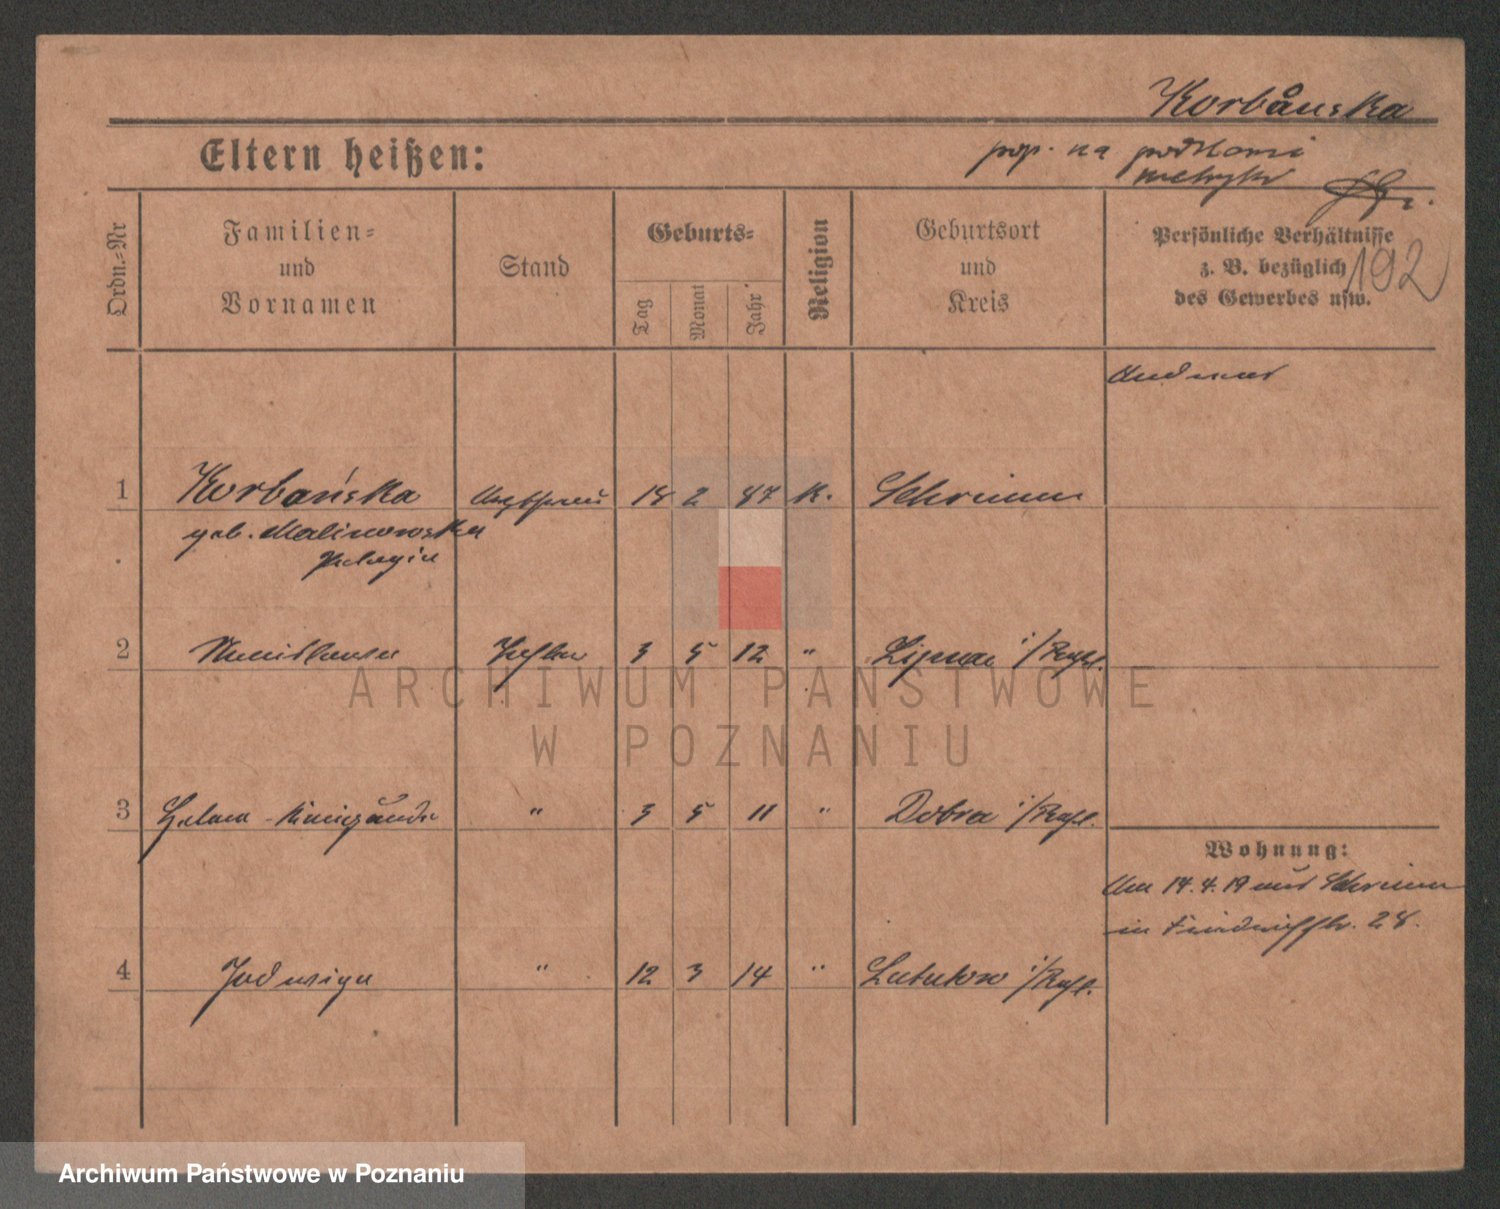 Korbańska
Eltern heißen:
pop. na podstawie
metryki
Ordn.=Nr
Familien=
und
Vornamen
Stand
Geburts=
Tag
Monat
Jahr
Religion
Geburtsort
und
Kreis
Persönliche Verhältnisse
z. B. bezüglich
des Gewerbes usw.
192
1 Korbańska 18 2 87 K. Schrimm
geb. Malinowska
Pelagia
2 Stanislawa Tochter 3 5 12 " i/Rußl.
3 Helena - Kunigunde " 3 5 11 " Dobra i/Rußl.
Wohnung:
Am 14.4.19 aus Schrimm
in Friedrichstr. 28.
4 Jadwiga " 12 3 14 " Lututow i/Rußl.
ARCHIWUM PAŃSTWOWE
W POZNANIU
Archiwum Państwowe w Poznaniu